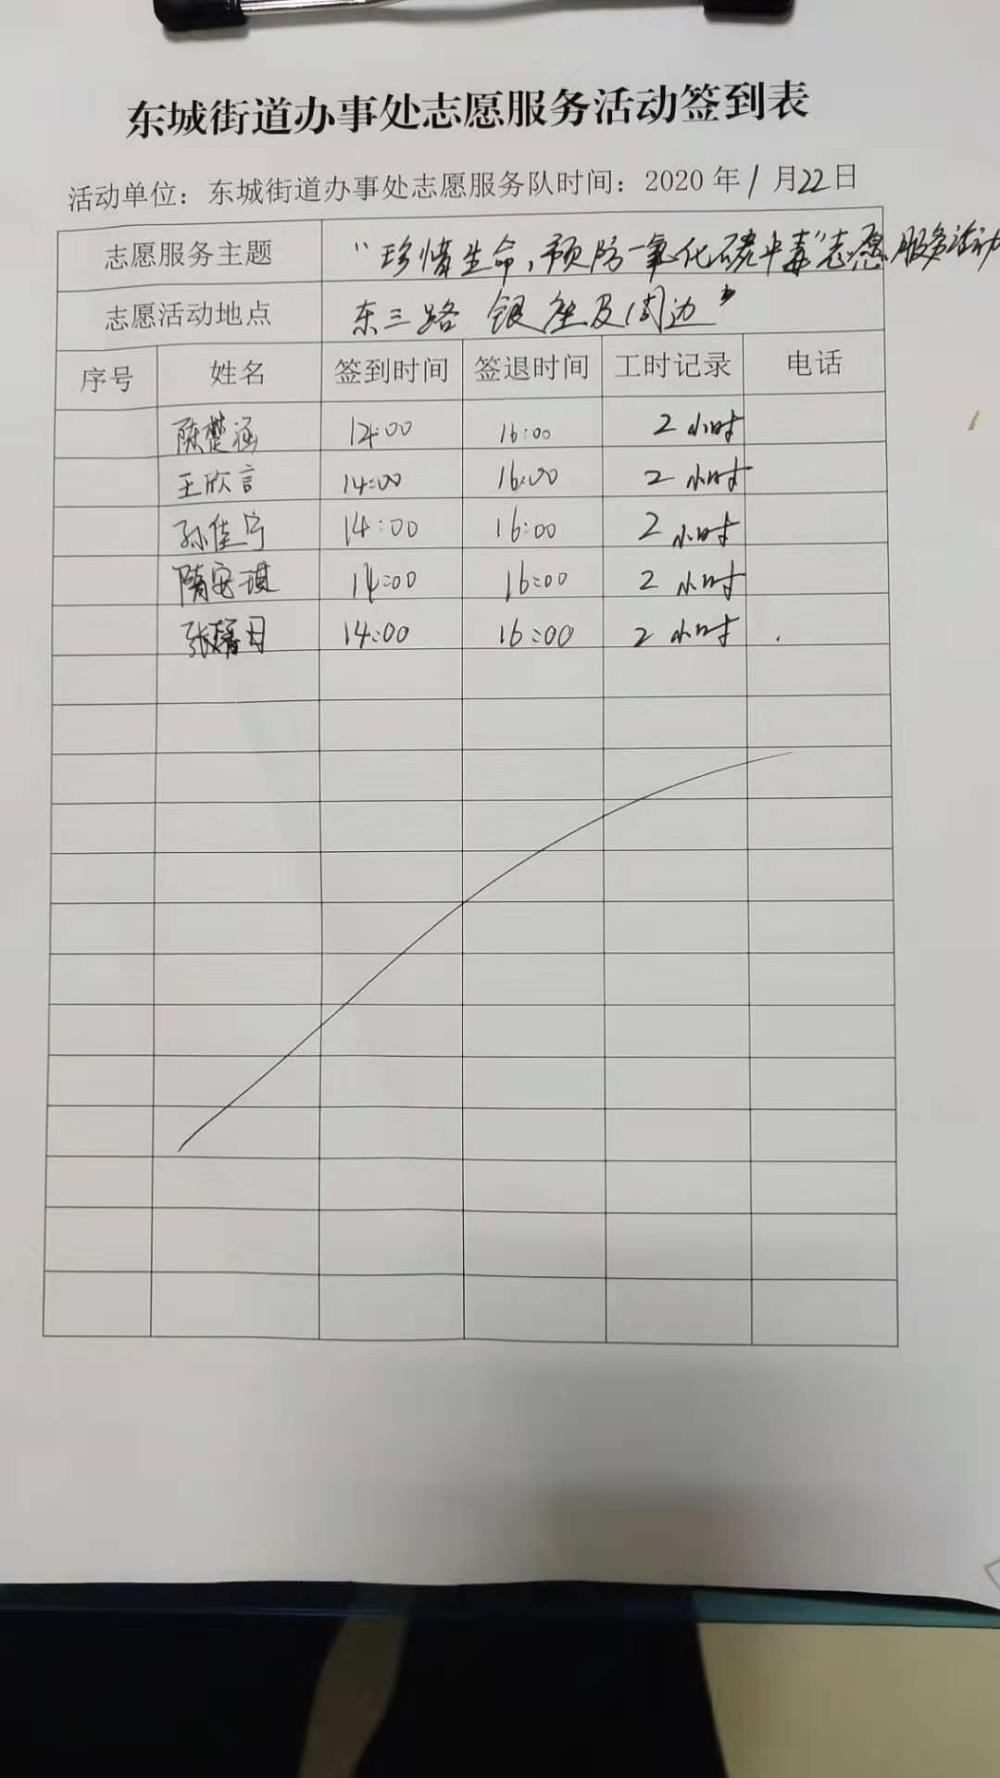 东城街道办事处志愿服务活动签到表
活动单位：东城街道办事处志愿服务队时间：2020 年 1 月 22 日
志愿服务主题 “珍惜生命，预防一氧化碳中毒”志愿服务活动
志愿活动地点 东三路 银座及周边”
序号 姓名 签到时间 签退时间 工时记录 电话
陈楚涵 14:00 16:00 2 小时
王欣言 14:00 16:00 2 小时
孙佳宁 14:00 16:00 2 小时
隋安琪 14:00 16:00 2 小时
张 14:00 16:00 2 小时